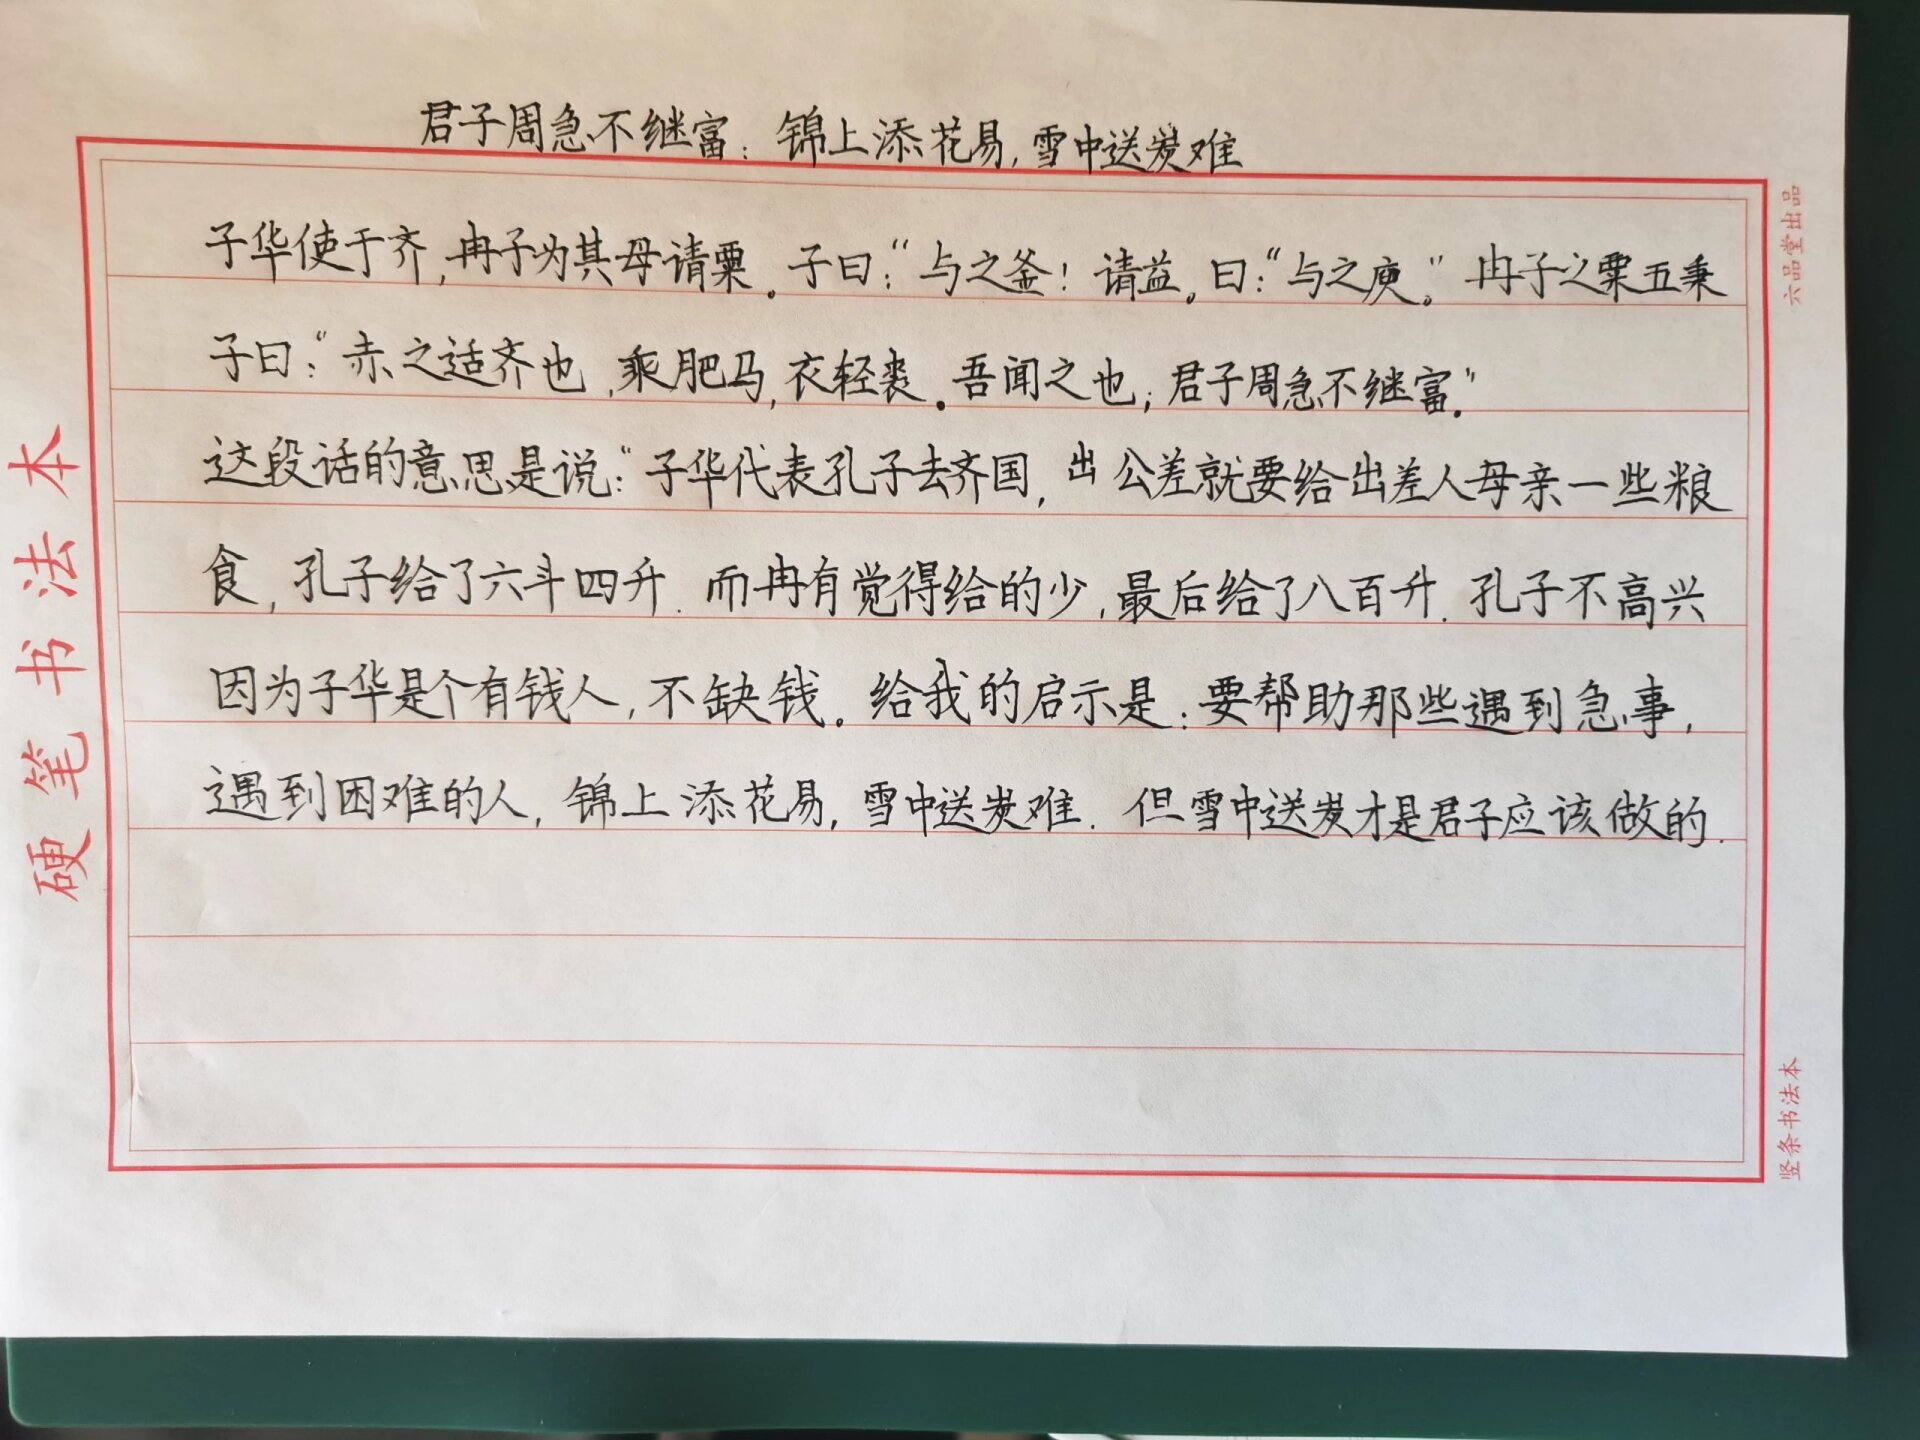 君子周急不继富：锦上添花易，雪中送炭难
子华使于齐，冉子为其母请粟。子曰：“与之釜！请益。曰：“与之庾。”冉子之粟五秉
子曰：“赤之适齐也，乘肥马，衣轻裘。吾闻之也；君子周急不继富。”
这段话的意思是说：“子华代表孔子去齐国，出公差就要给出差人母亲一些粮
食，孔子给了六斗四升．而冉有觉得给的少，最后给了八百升．孔子不高兴
因为子华是个有钱人，不缺钱。给我的启示是：要帮助那些遇到急事，
遇到困难的人，锦上添花易，雪中送炭难．但雪中送炭才是君子应该做的．
硬笔书法本
六品堂出品
竖条书法本